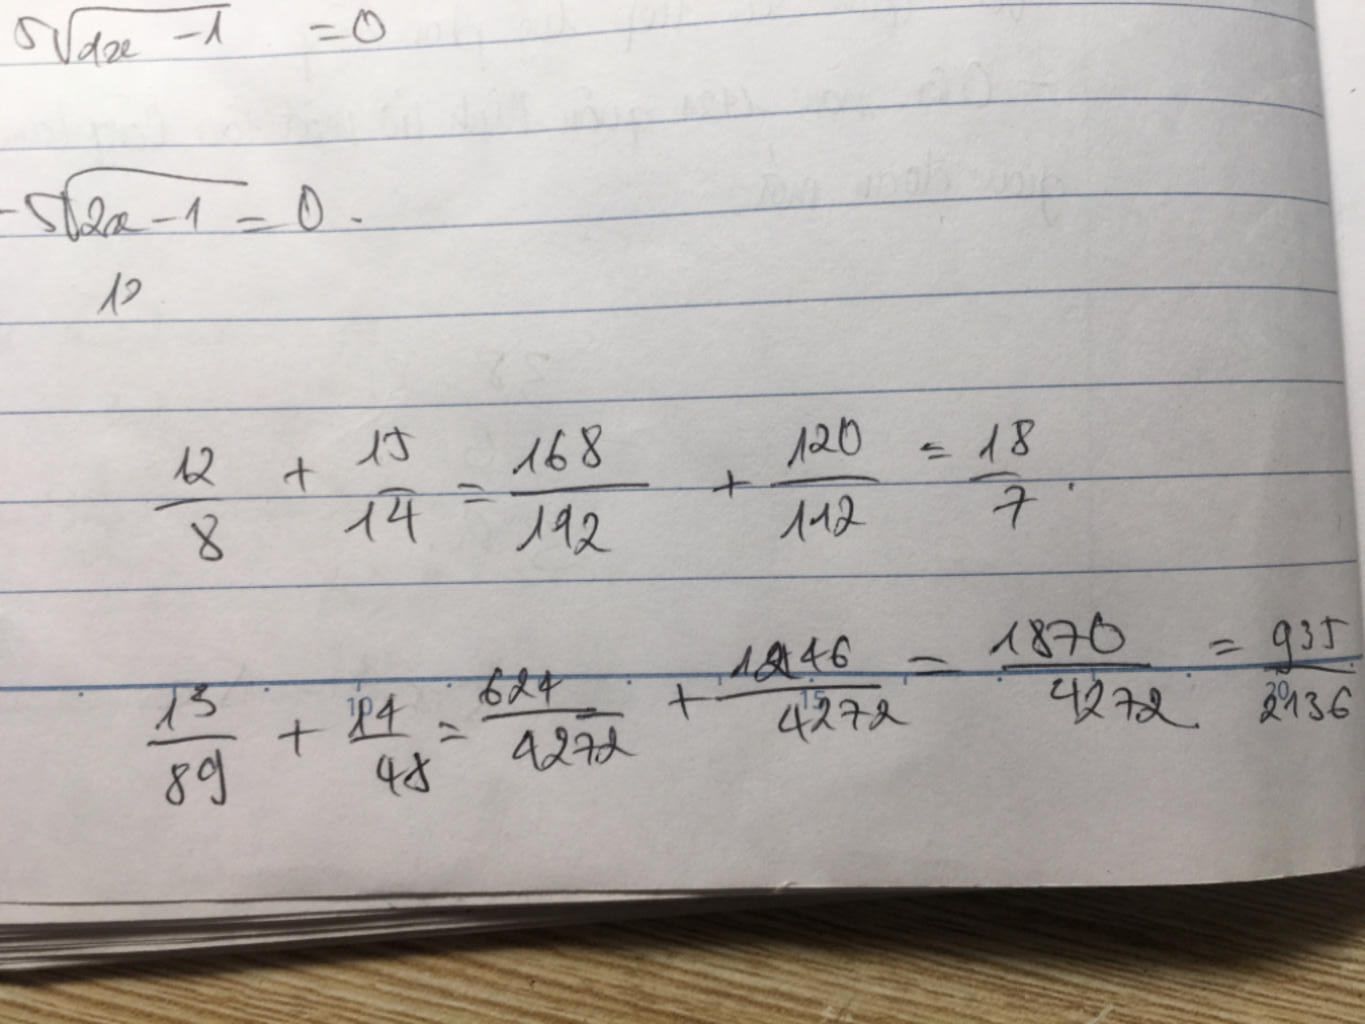 5√2x - 1 = 0
- 5√2x - 1 = 0.
12/8 + 15/14 = 168/192 + 120/112 = 18/7.
13/89 + 14/48 = 624/4272 + 1246/4272 = 1870/4272 = 935/2136